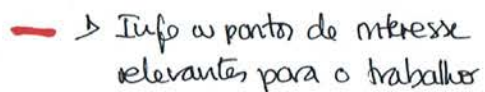 Info ou pontos de interesse
relevantes para o trabalho